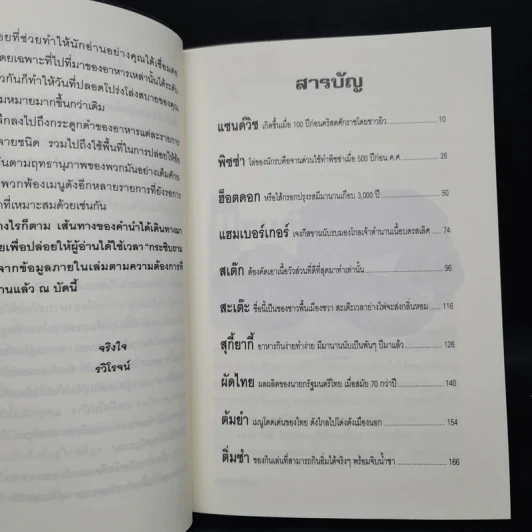 อยที่ช่วยทำให้นักอ่านอย่างคุณได้เชื่อมต่อ
ดยเฉพาะที่ไปที่มาของอาหารเหล่านั้นได้ระดับ
วกันก็ทำให้วันที่ปลอดโปร่งโล่งสบายของคุณ
มหมายมากขึ้นกว่าเดิม
ลึกลงไปถึงกระดูกดำของอาหารแต่ละรายการ
ายชนิด รวมไปถึงใช้พื้นที่ในการปล่อยให้
ันตามฤทธานุภาพของพวกมันอย่างเต็มศักย
พวกพ้องเมนูดังอีกหลายรายการที่ยังรอการ
ที่เหมาะสมด้วยเช่นกัน
างไรก็ตาม เส้นทางของคำนำได้เดินทางมา
ยเพื่อปล่อยให้ผู้อ่านได้ใช้เวลา "กระชับถาม
จากข้อมูลภายในเล่มตามความต้องการที่
านแล้ว ณ บัดนี้
จริงใจ
รวิโรจน์
สารบัญ
แซนด์วิช เกิดขึ้นเมื่อ 100 ปีก่อนคริสตศักราชโดยชาวยิว 10
พิซซ่า ไล่ของนักรบคือจานด่วนใช้ทำพิซซ่าเมื่อ 500 ปีก่อน ค.ศ. 26
ฮ็อตดอก หรือไส้กรอกปรุงรสมีมานานเกือบ 3,000 ปี 50
แฮมเบอร์เกอร์ เจงกีสขานนับรบมองโกลเจ้าตำนานเนื้อบดรสเลิศ 74
สเต๊ก ต้องคัดเอาเนื้อวัวส่วนที่ดีที่สุดมาทำเท่านั้น 96
สะเต๊ะ ชื่อนี้เป็นของชาวพื้นเมืองชวา สะเต๊ะเวลาย่างไฟจะส่งกลิ่นหอม 116
สุกี้ยากี้ อาหารกินง่ายทำง่าย มีมานานนับเป็นพันๆ ปีมาแล้ว 126
ผัดไทย ผลผลิตของนายกรัฐมนตรีไทย เมื่อสมัย 70 กว่าปี 140
ต้มยำ เมนูโดดเด่นของไทย ดังไกลไปโด่งดังเมืองนอก 154
ติ่มซำ ของกินเล่นที่สามารถกินอิ่มได้จริงๆ พร้อมจิบน้ำชา 166